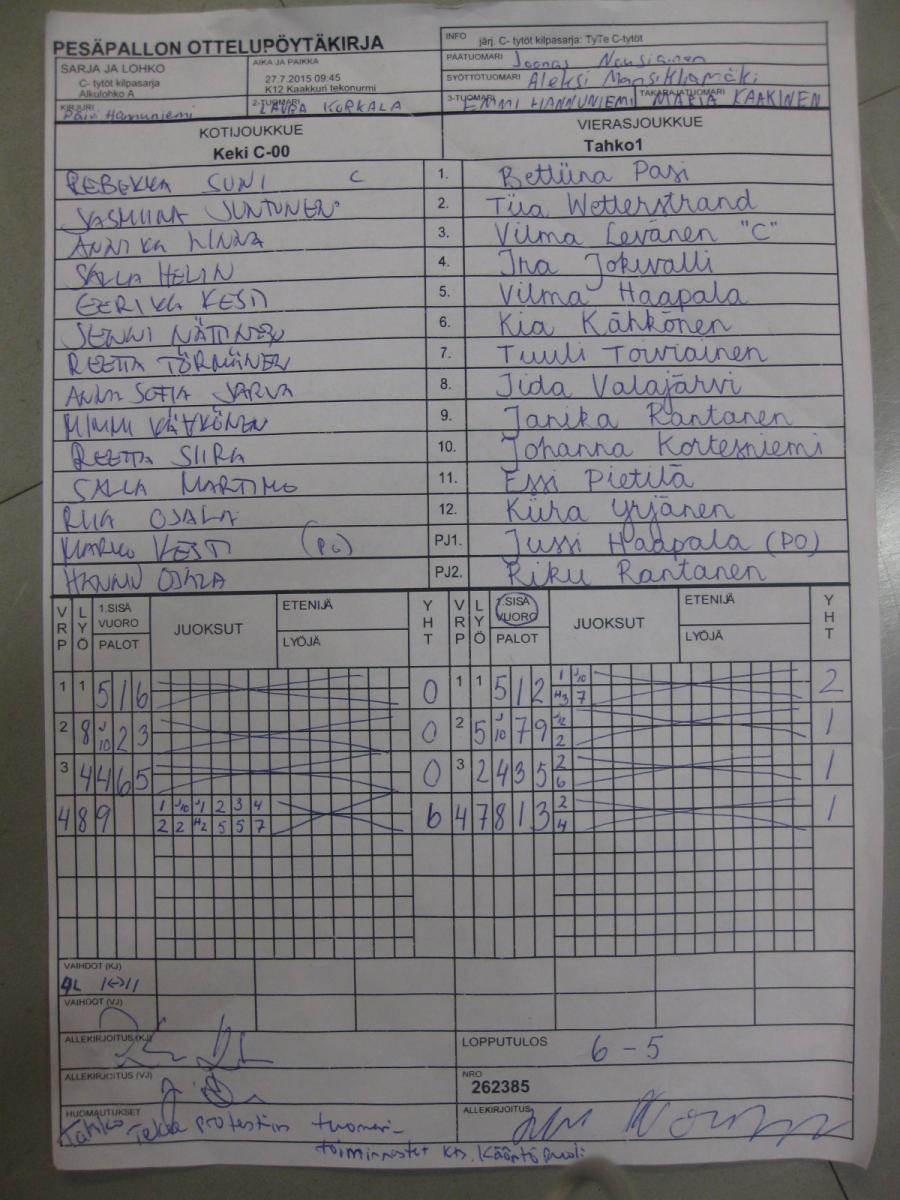 PESÄPALLON OTTELUPÖYTÄKIRJA
INFO järj. C- tytöt kilpasarja: TyTe C-tytöt
PÄÄTUOMARI Joonas Nousiainen
SYÖTTÖTUOMARI Aleksi Mansikkamäki
3-TUOMARI EMMI HANNUNIEMI TAKARAJATUOMARI MARIA KAAKINEN
SARJA JA LOHKO
C- tytöt kilpasarja
Alkulohko A
AIKA JA PAIKKA
27.7.2015 09:45
K12 Kaakkuri tekonurmi
KIRJURI Päivi Hannuniemi
2-TUOMARI LAURA KORKALA
KOTIJOUKKUE VIERASJOUKKUE
Keki C-00 Tahko1
REBEKKA SUNI C 1. Bettiina Pasi
JASMIINA JUNTUNEN 2. Tiia Wetterstrand
ANNIKA LINNA 3. Vilma Levänen "C"
SALLA HELIN 4. Ina Jokivalli
EERIKA KESTI 5. Vilma Haapala
SENNI NÄTTINEN 6. Kia Kähkönen
REETTA TÖRMÄNEN 7. Tuuli Toiviainen
ANNA SOFIA JARVA 8. Iida Valajärvi
MIMMI KÄHKÖNEN 9. Janika Rantanen
REETTA SIIRA 10. Johanna Kortesniemi
SALLA MARTIMO 11. Essi Pietilä
RIIA OJALA 12. Kiira Yrjänen
MARKO KESTI (PO) PJ1. Jussi Haapala (PO)
HANNU OJALA PJ2. Riku Rantanen
VRP LYÖ 1.SISÄ VUORO PALOT JUOKSUT ETENIJÄ LYÖJÄ YHT VRP LYÖ 1.SISÄ VUORO PALOT JUOKSUT ETENIJÄ LYÖJÄ YHT
1 1 5 1 6 0 1 1 5 1 2 1 J10 2
H3 7
2 8 J10 2 3 0 2 5 J10 7 9 J12 1
2
3 4 4 6 5 0 3 2 4 3 5 2 1
6
4 8 9 1 J10 J1 2 3 4 6 4 7 8 1 3 2 1
2 2 H2 5 5 7 4
VAIHDOT (KJ)
4L 1<->11
VAIHDOT (VJ)
ALLEKIRJOITUS (KJ)
LOPPUTULOS 6 - 5
ALLEKIRJOITUS (VJ)
NRO
262385
HUOMAUTUKSET
ALLEKIRJOITUS
Tahko Teki protestin tuomari-
toiminnistet kts. Kääntöpuoli